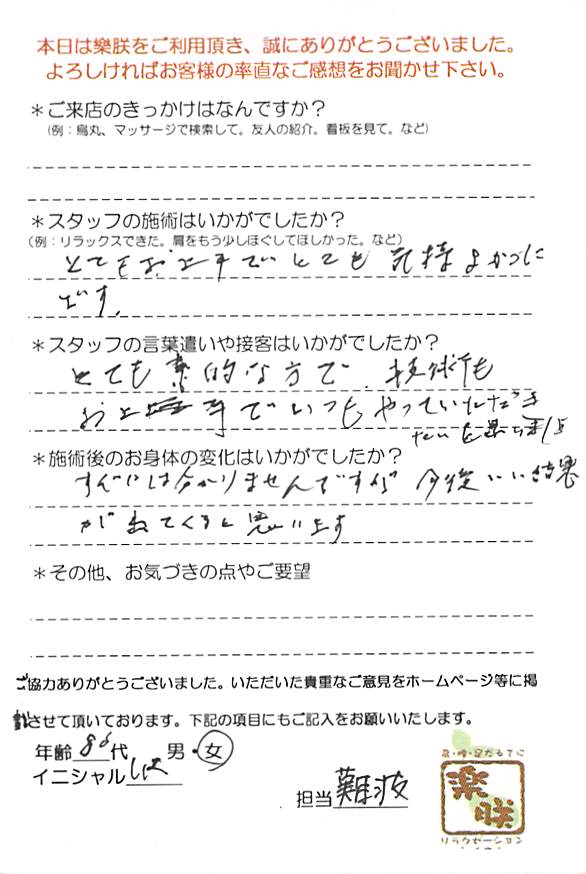 本日は樂朕をご利用頂き、誠にありがとうございました。
よろしければお客様の率直なご感想をお聞かせ下さい。
＊ご来店のきっかけはなんですか？
（例：烏丸、マッサージで検索して。友人の紹介。看板を見て。など）
＊スタッフの施術はいかがでしたか？
（例：リラックスできた。肩をもう少しほぐしてほしかった。など）
とてもお上手でとても気持よかった
です。
＊スタッフの言葉遣いや接客はいかがでしたか？
とても素的な方で、技術も
お上手でいつもやっていただき
たいと思いました
＊施術後のお身体の変化はいかがでしたか？
すぐには分かりませんですが今後いい結果
が出てくると思います
＊その他、お気づきの点やご要望
ご協力ありがとうございました。いただいた貴重なご意見をホームページ等に掲
載させて頂いております。下記の項目にもご記入をお願いいたします。
年齢80代 男・女
イニシャル
担当 難波
肩・腰・足だるすに
楽朕
リラクゼーション